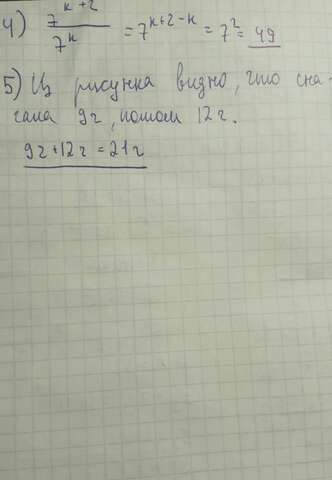 4) 7^(к+2) / 7^к = 7^(к+2-к) = 7^2 = 49
5) Из рисунка видно, что сна-
чала 9г, потом 12г.
9г+12г=21г